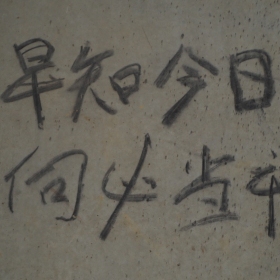 早知今日
何必当